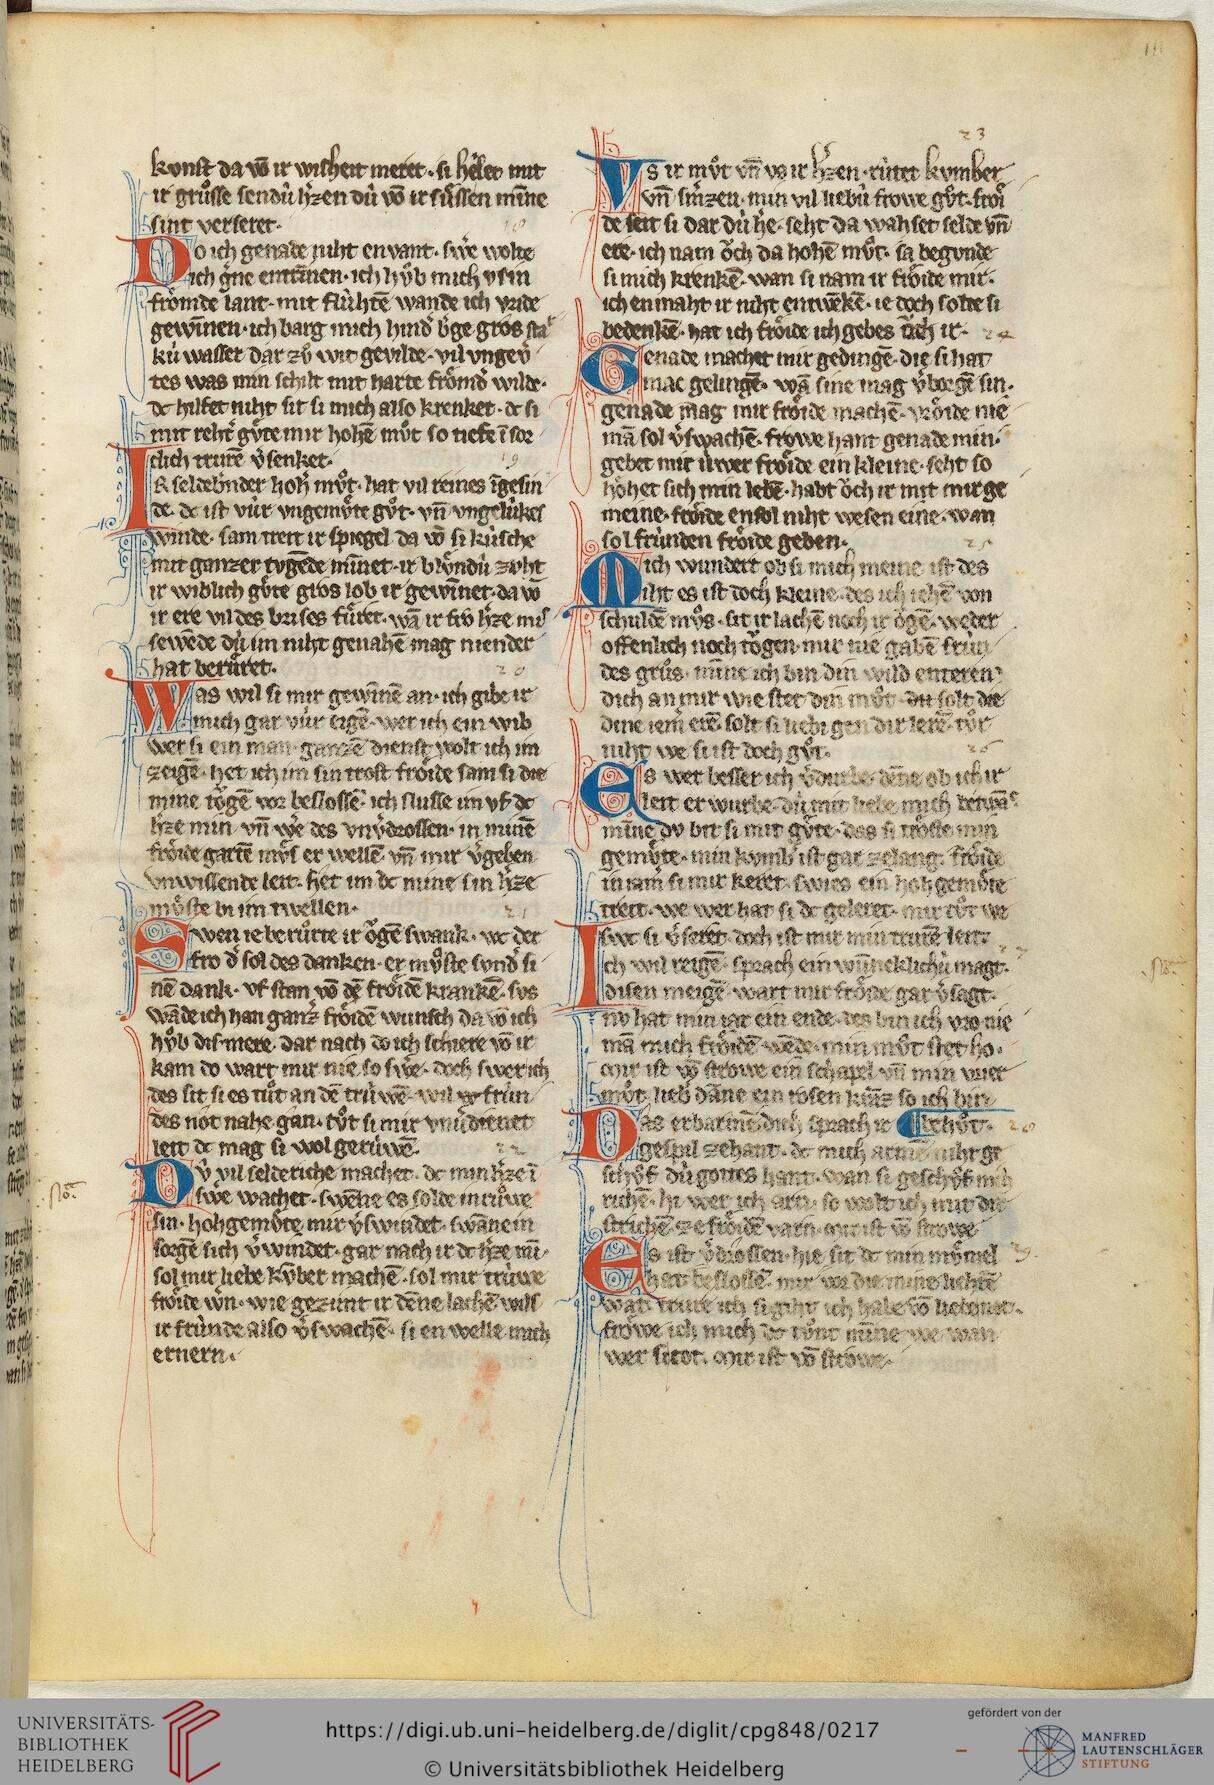 konst da vō ir wisheit meret · si heilet mit
ir grůsse sendú h̓zen dú vō ir sůssen mīne
sint verseret ·
Do ich genade niht envant · swe wolte
ich g̓ne entrīnen · ich hůb mich vs in
frömde lant · mit flúhtē wande ich vride
gewīnen · ich barg mich hind̓ b̓ge gros star
kú wasser dar zů wit gevilde · vil vnge
tes was min schilt mit harte frömd̓ wilde ·
dc hilfet niht sit si mich also krenket · dc si
mit reht̓ gůte mir hohē můt so tiefe ī sor
clich trurē v̓senket ·
hat berůret ·
Was wil si mir gewīnē an · ich gibe ir
mich gar vúr eigē · wer ich ein wib
wer si ein man · ganzē dienst wolt ich im
zeigē · het ich im sin trost fröide sam si die
mine ögē vor beslossē · ich slusse im vf dc
h̓ze min · vn̄ we des vnv̓drossen · in minē
fröide gartē můs er wellē · vn̄ mir v̓geben
vnwissende leit · het im dc mine sin h̓ze
můste bi im twellen ·
Swen ie berůrte ir ögē swank · wc der
fro d̓ sol des danken · er můste sund̓ si
nē dank · vf stan vō dē fröidē krankē · sus
wāde ich han ganz̓ fröidē wunsch da vō ich
hůb dis mere · dar nach do ich schiere vō ir
kam do wart mir nie so swe · doch swer ich
des sit si es tůt an dē trúwē · wil ir frún
des not nahe gan · tůt si mir vnv̓dienet
leit dc mag si wol gerúwē ·
Dv̓ vil selderiche machet · dc min h̓ze ī
swe wachet · swēne es solde in růwe
sin · hohgemůte mir v̓swindet · swāne in
sorgē sich v̓windet · gar nach ir dc h̓ze mī ·
sol mir liebe kūber machē · sol mir trúwe
fröide w̓n · wie gezimt ir dēne lachē · wil si
ir frúnde also v̓swachē · si en welle mich
ernern ·
23
Vs ir můt vn̄ vs ir h̓zen · rútet kvmber
vn̄ sm̓zen · min vil liebú frowe gůt · fröi
de leit si dar dú he · seht da wahset selde vn̄
ere · ich nam öch da hohē můt · sa begvnde
si mich krenkē · wan si nam ir fröide mir ·
ich enmaht ir niht entwēkē · ie doch solte si
bedenkē · hat ich fröide ich gebes öch ir · 24
Genade machet mir gedingē · die si hat
mac gelingē · wā sine mag v̓borgē sin ·
genade mag mir fröide machē · vröide nie
mā sol v̓swachē · frowe hant genade min ·
gebet mir úwer fröide ein kleine · seht so
höhet sich min lebē · habt öch ir mit mir ge
meine · fröide ensol niht wesen eine · wan
sol frúnden fröide geben · 25
Mich wundert ob si mich meine ist des
niht es ist doch kleine · des ich iehē von
schuldē můs · sit ir lachē noch ir ögē · weder
offenlich noch tögen · mir nie gabē frún
des grůs · mīne ich bin din wild enteren
dich an mir wie stet din můt · du solt die
dine iem̓ erē · solt si liebi gen dir lerē · tůt
niht we si ist doch gůt · 26
Es wer besser ich v̓durbe · dēne ob ich ir
leit erwurbe · dú mit liebe mich betwā
mīne dv bit si mit gůte · das si tröste min
gemůte · min kvmb̓ ist gar zelang · fröide
in iam̓ si mir keret · swies ein hohgemůte
treit · we wer hat si dc geleret · mir tůt we
swc si v̓seret · doch ist mir min trurē leit · 27
Ich wil reigē · sprach ein wūneklichú magt ·
disen meigē · wart mir fröide gar v̓sagt ·
nv hat min iar ein ende · des bin ich vro · nie
mā mich fröidē wēde · min můt stet ho ·
mir ist vō strowe ein schapel vn̄ min vrier
můt · lieb̓ dāne ein rosen krāz so ich bin
behůt ·
Das erbarmē dich sprach ir
gespil zehant · dc mich armē niht ge
schůf dú gottes hant · wan si geschůf mich
richē · hi wer ich arn · so wolt ich mit dir
strichē · ze fröidē varn · mir ist vō strowe
Es ist v̓drossen · hie sit dc min můmel
hat beslossē · mir vor die mine liehtē
wat · trure ich si giht · ich habe vō liebe not ·
fröwe ich mich dc tůnt mīne · we wan
wer si tot · mir ist vō strowe ·
UNIVERSITÄTS-
BIBLIOTHEK
HEIDELBERG
https://digi.ub.uni-heidelberg.de/diglit/cpg848/0217
© Universitätsbibliothek Heidelberg
gefördert von der
MANFRED
LAUTENSCHLÄGER
STIFTUNG